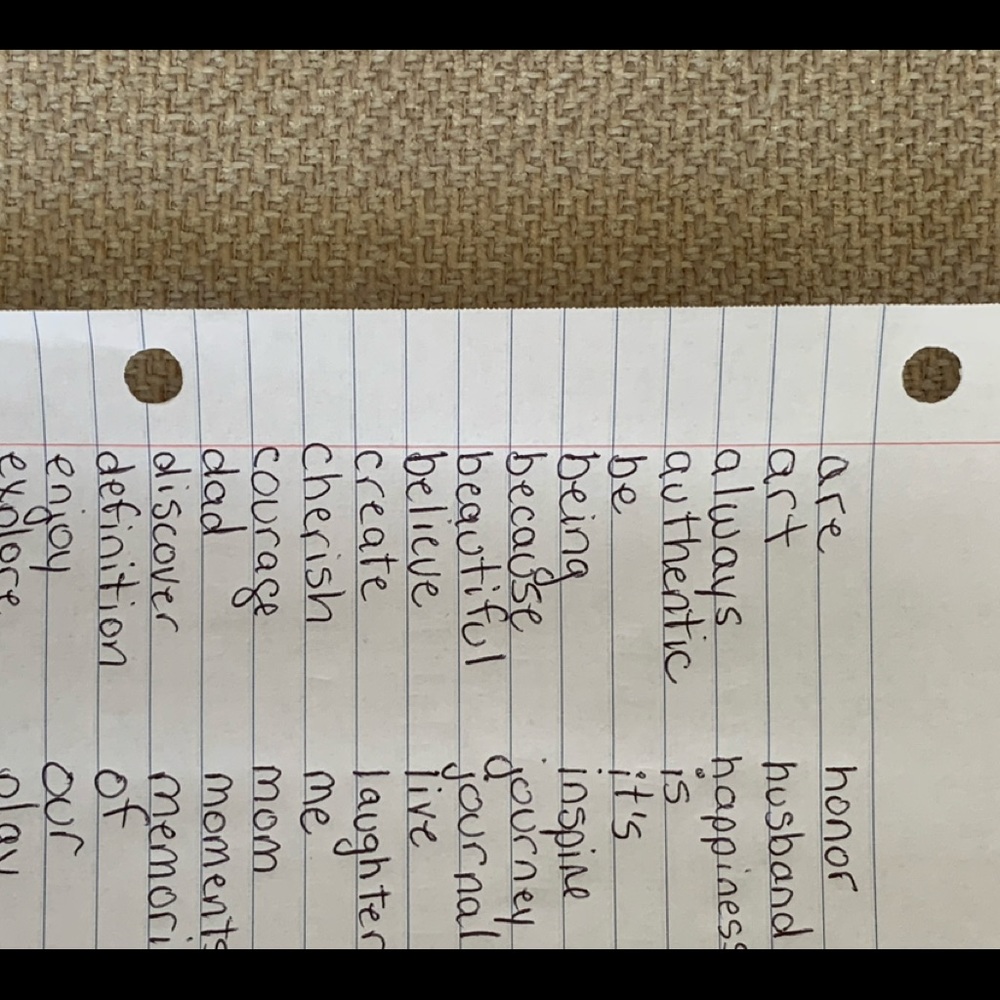 are honor
art husband
always happiness
authentic is
be it's
being inspire
because journey
beautiful journal
believe live
create laughter
cherish me
courage mom
dad moments
discover memori
definition of
enjoy our
explore play